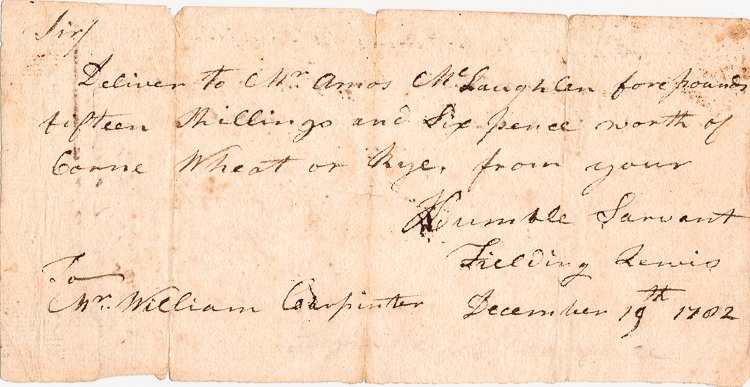 Sir/
Deliver to Mr. Amos McLaughlen fore pounds
fifteen Shillings and Six pence worth of
Corne Wheat or Rye, from your
Humble Sarvant
Fielding Lewis
To
Mr. William Carpinter December 19th 1782